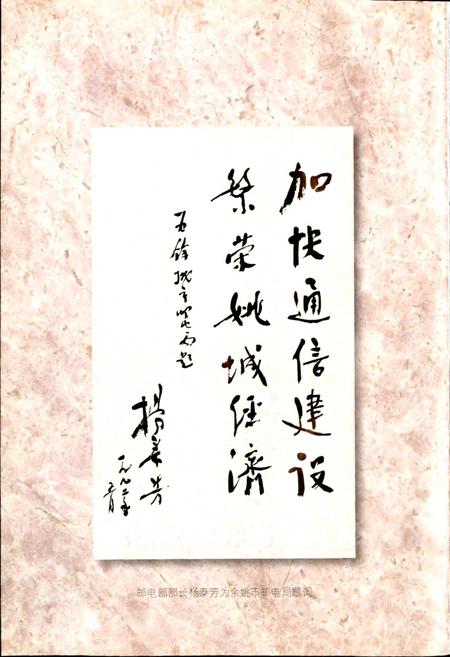 加快通信建设
繁荣姚城经济
为馀姚市邮电局题
杨泰芳
一九九二年
邮电部部长杨泰芳为余姚市邮电局题词